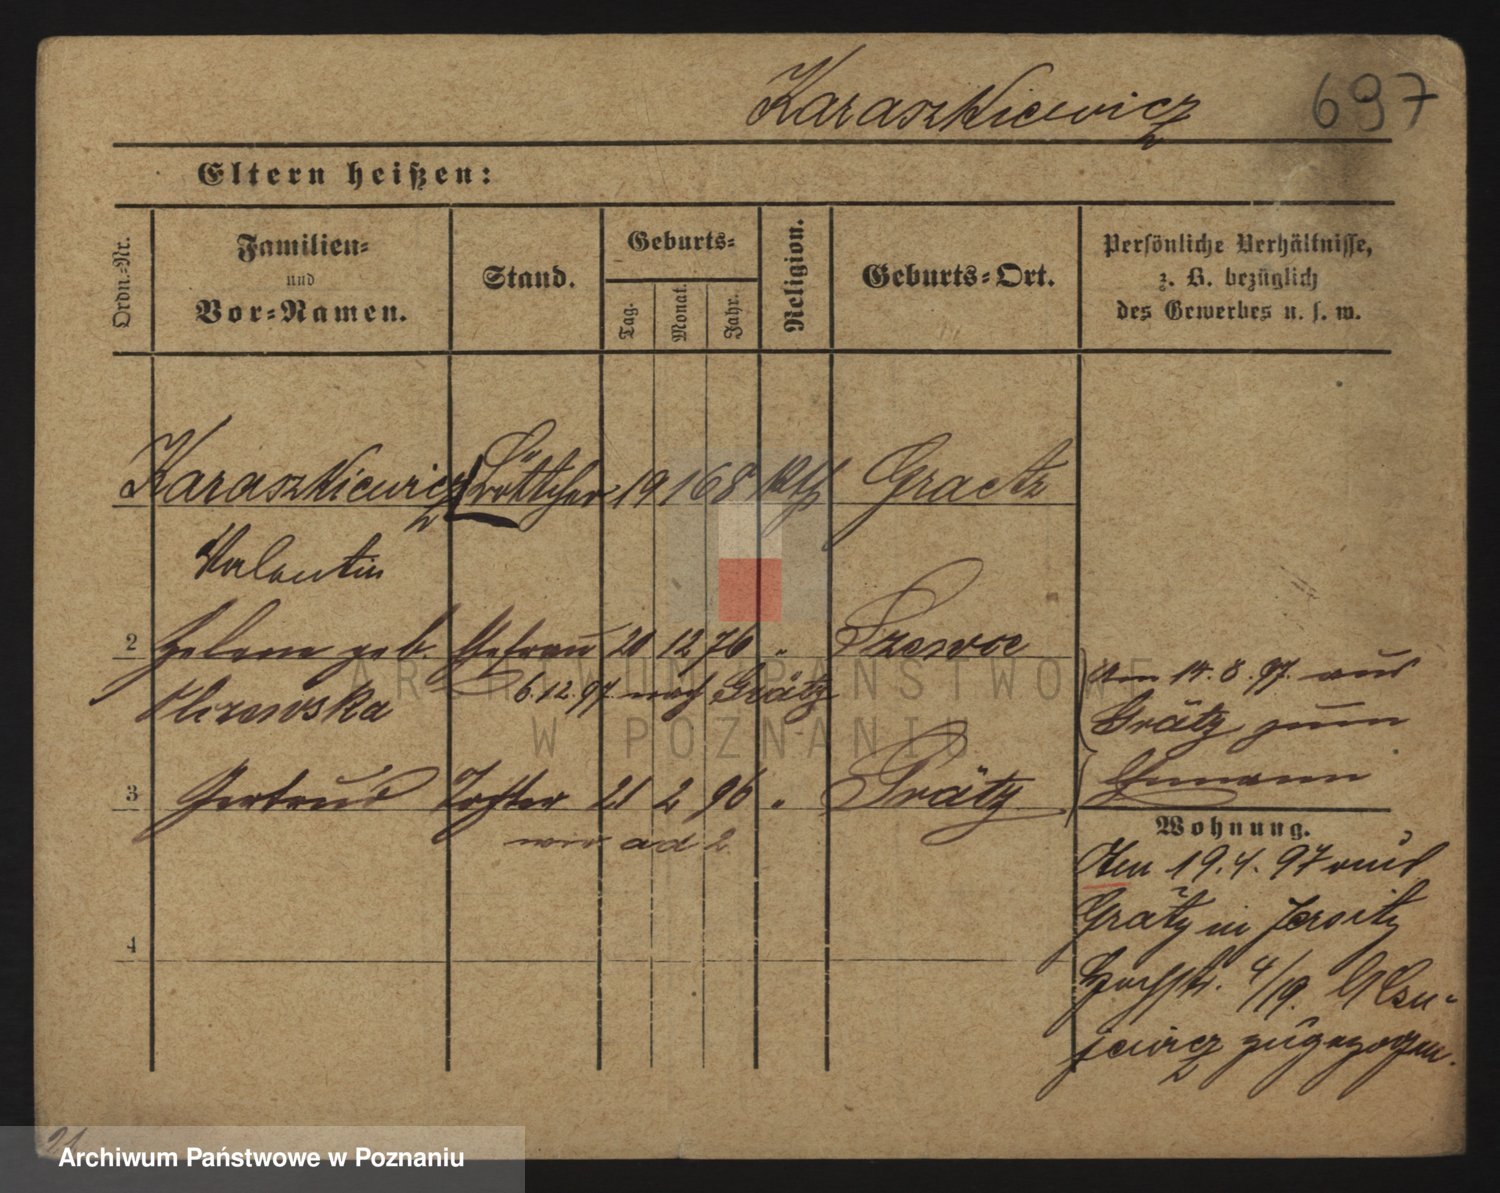 Karaszkiewicz 697
Eltern heißen:
Ordn.=Nr.
Familien=
und
Vor=Namen.
Stand.
Geburts=
Tag.
Monat.
Jahr.
Religion.
Geburts=Ort.
Persönliche Verhältnisse,
z. B. bezüglich
des Gewerbes u. s. w.
Karaszkiewicz Böttcher 19 1 68 Kth Graetz
Valentin
2 Helene geb. Ehefrau 20 12 76 " 
6.12.97 nach Grätz
3 Gertrud Tochter 21 2 96 " Grätz
wie ad 2
4
Am 14.8.97. aus
Grätz zum
Ehemann
Wohnung.
Am 19.4.97 aus
Grätz in Jersitz
4/19.
zugezogen.
21
ARCHIWUM PAŃSTWOWE
W POZNANIU
Archiwum Państwowe w Poznaniu